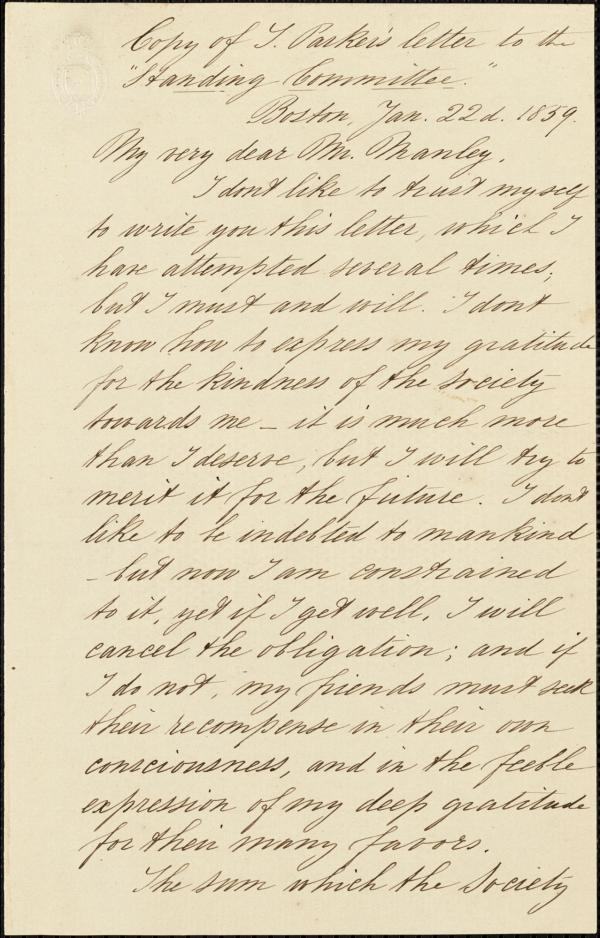 Copy of T. Parker's letter to the
"Standing Committee."
Boston, Jan. 22d. 1859.
My very dear Mr. Manley,
I dont like to trust myself
to write you this letter, which I
have attempted several times,
but I must and will. I dont
know how to express my gratitude
for the kindness of the Society
towards me – it is much more
than I deserve, but I will try to
merit it for the future. I dont
like to be indebted to mankind
– but now I am constrained
to it, yet if I get well, I will
cancel the obligation; and if
I do not, my friends must seek
their recompense in their own
consciousness, and in the feeble
expression of my deep gratitude
for their many favors.
The sum which the Society